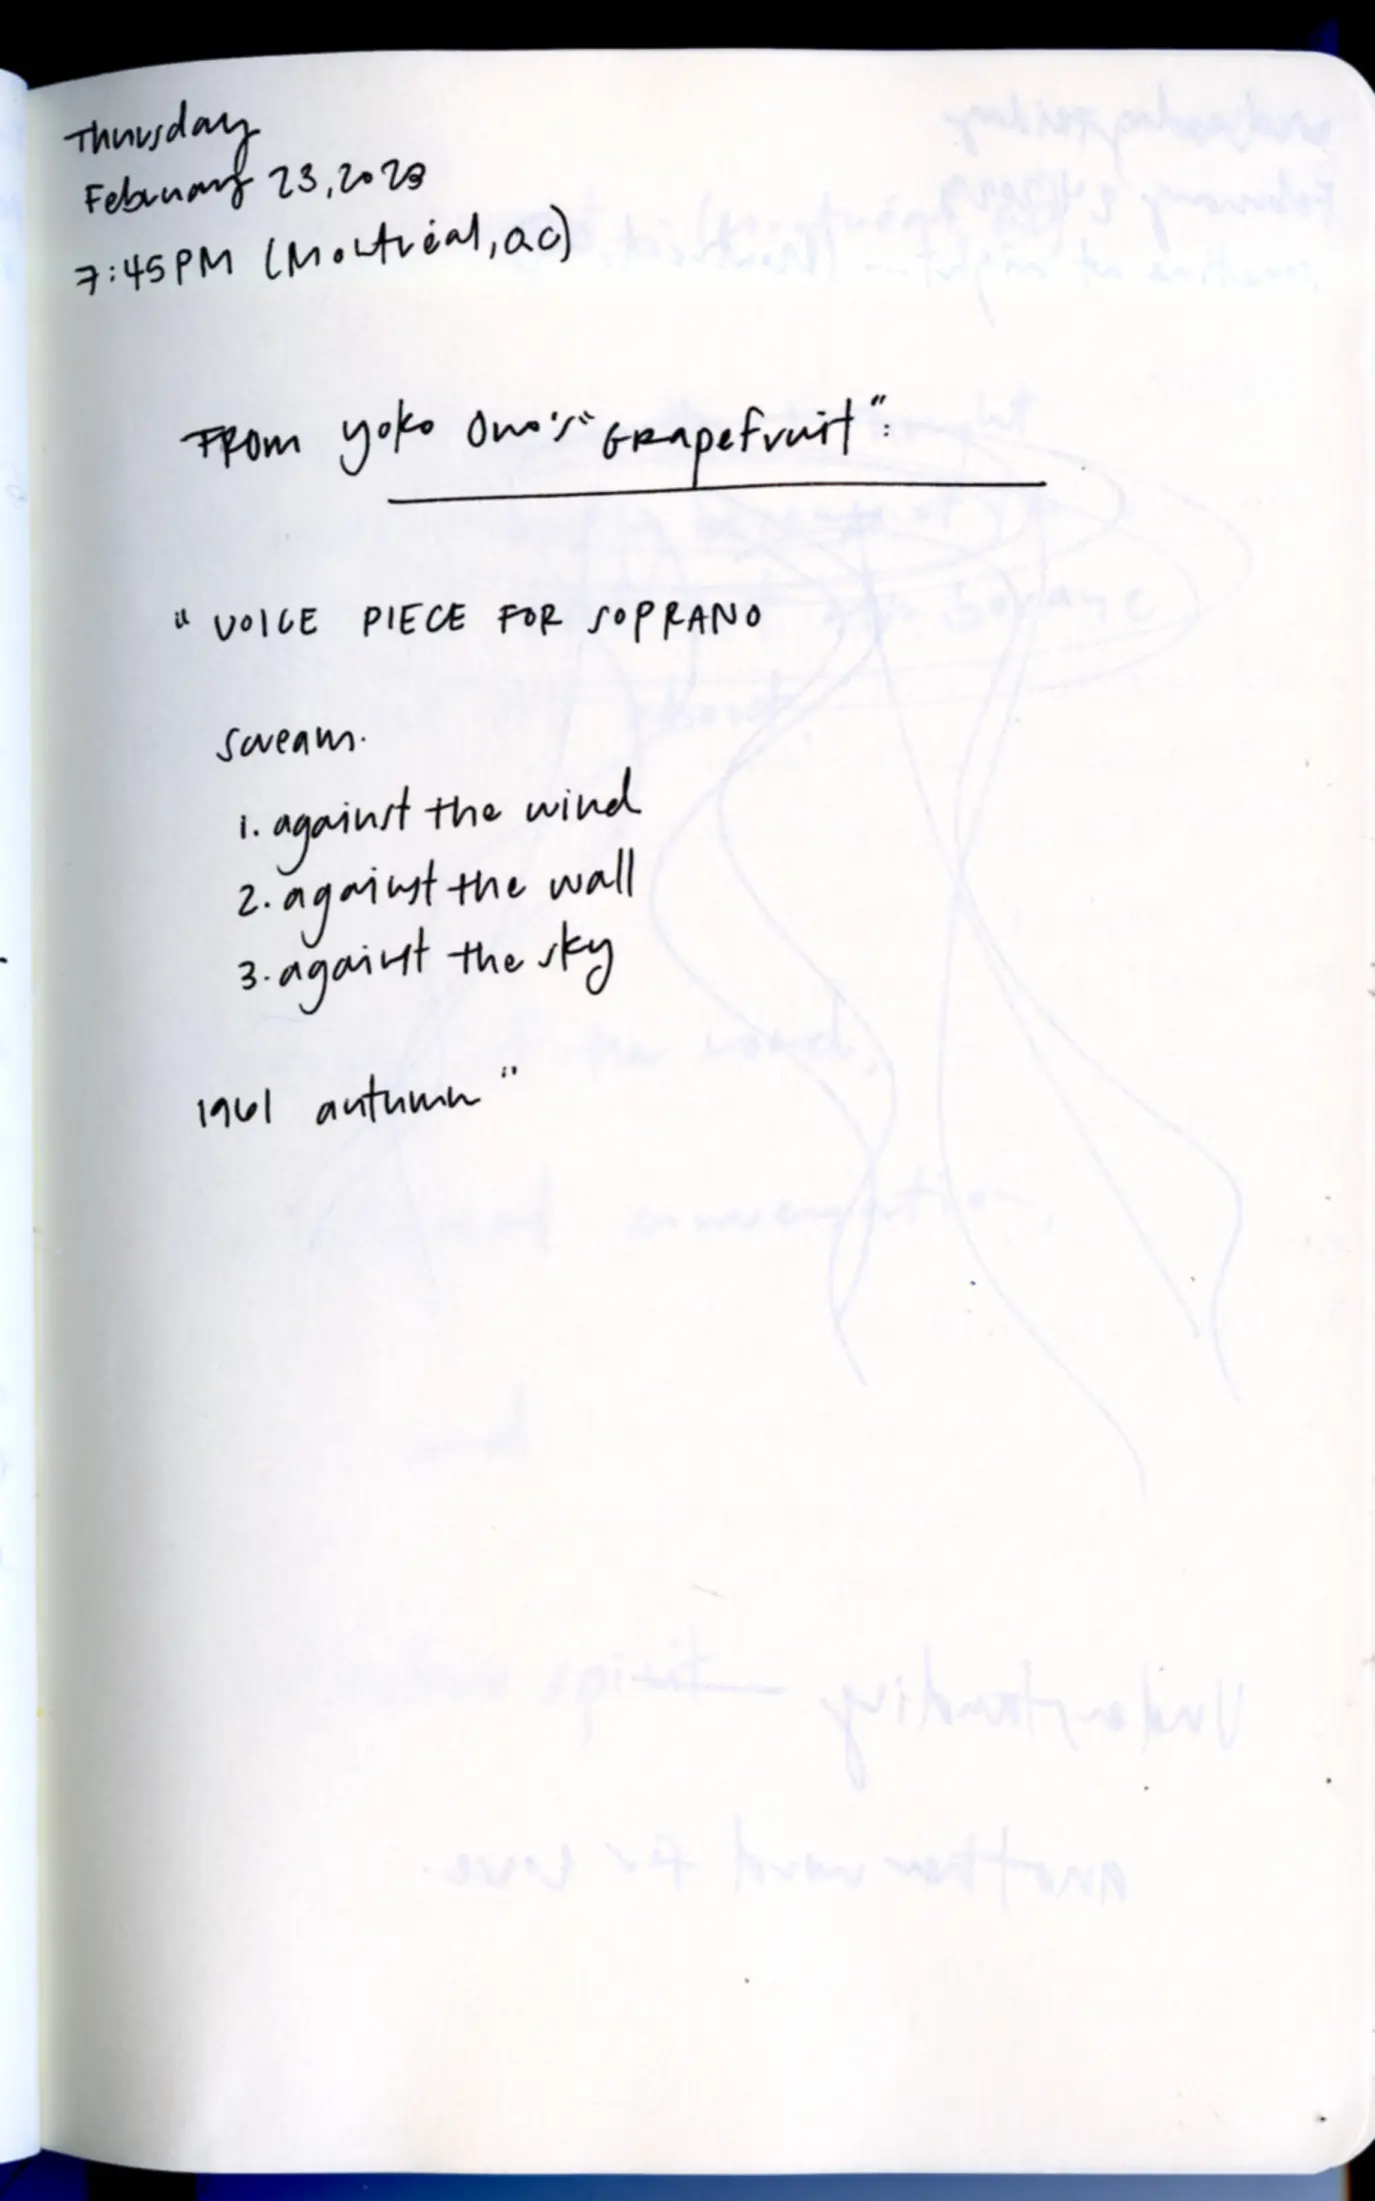 Thursday
February 23, 2023
7:45PM (Montréal, QC)
From Yoko Ono's "Grapefruit":
"VOICE PIECE FOR SOPRANO
Scream.
1. against the wind
2. against the wall
3. against the sky
1961 autumn"
Understanding
another word for love.